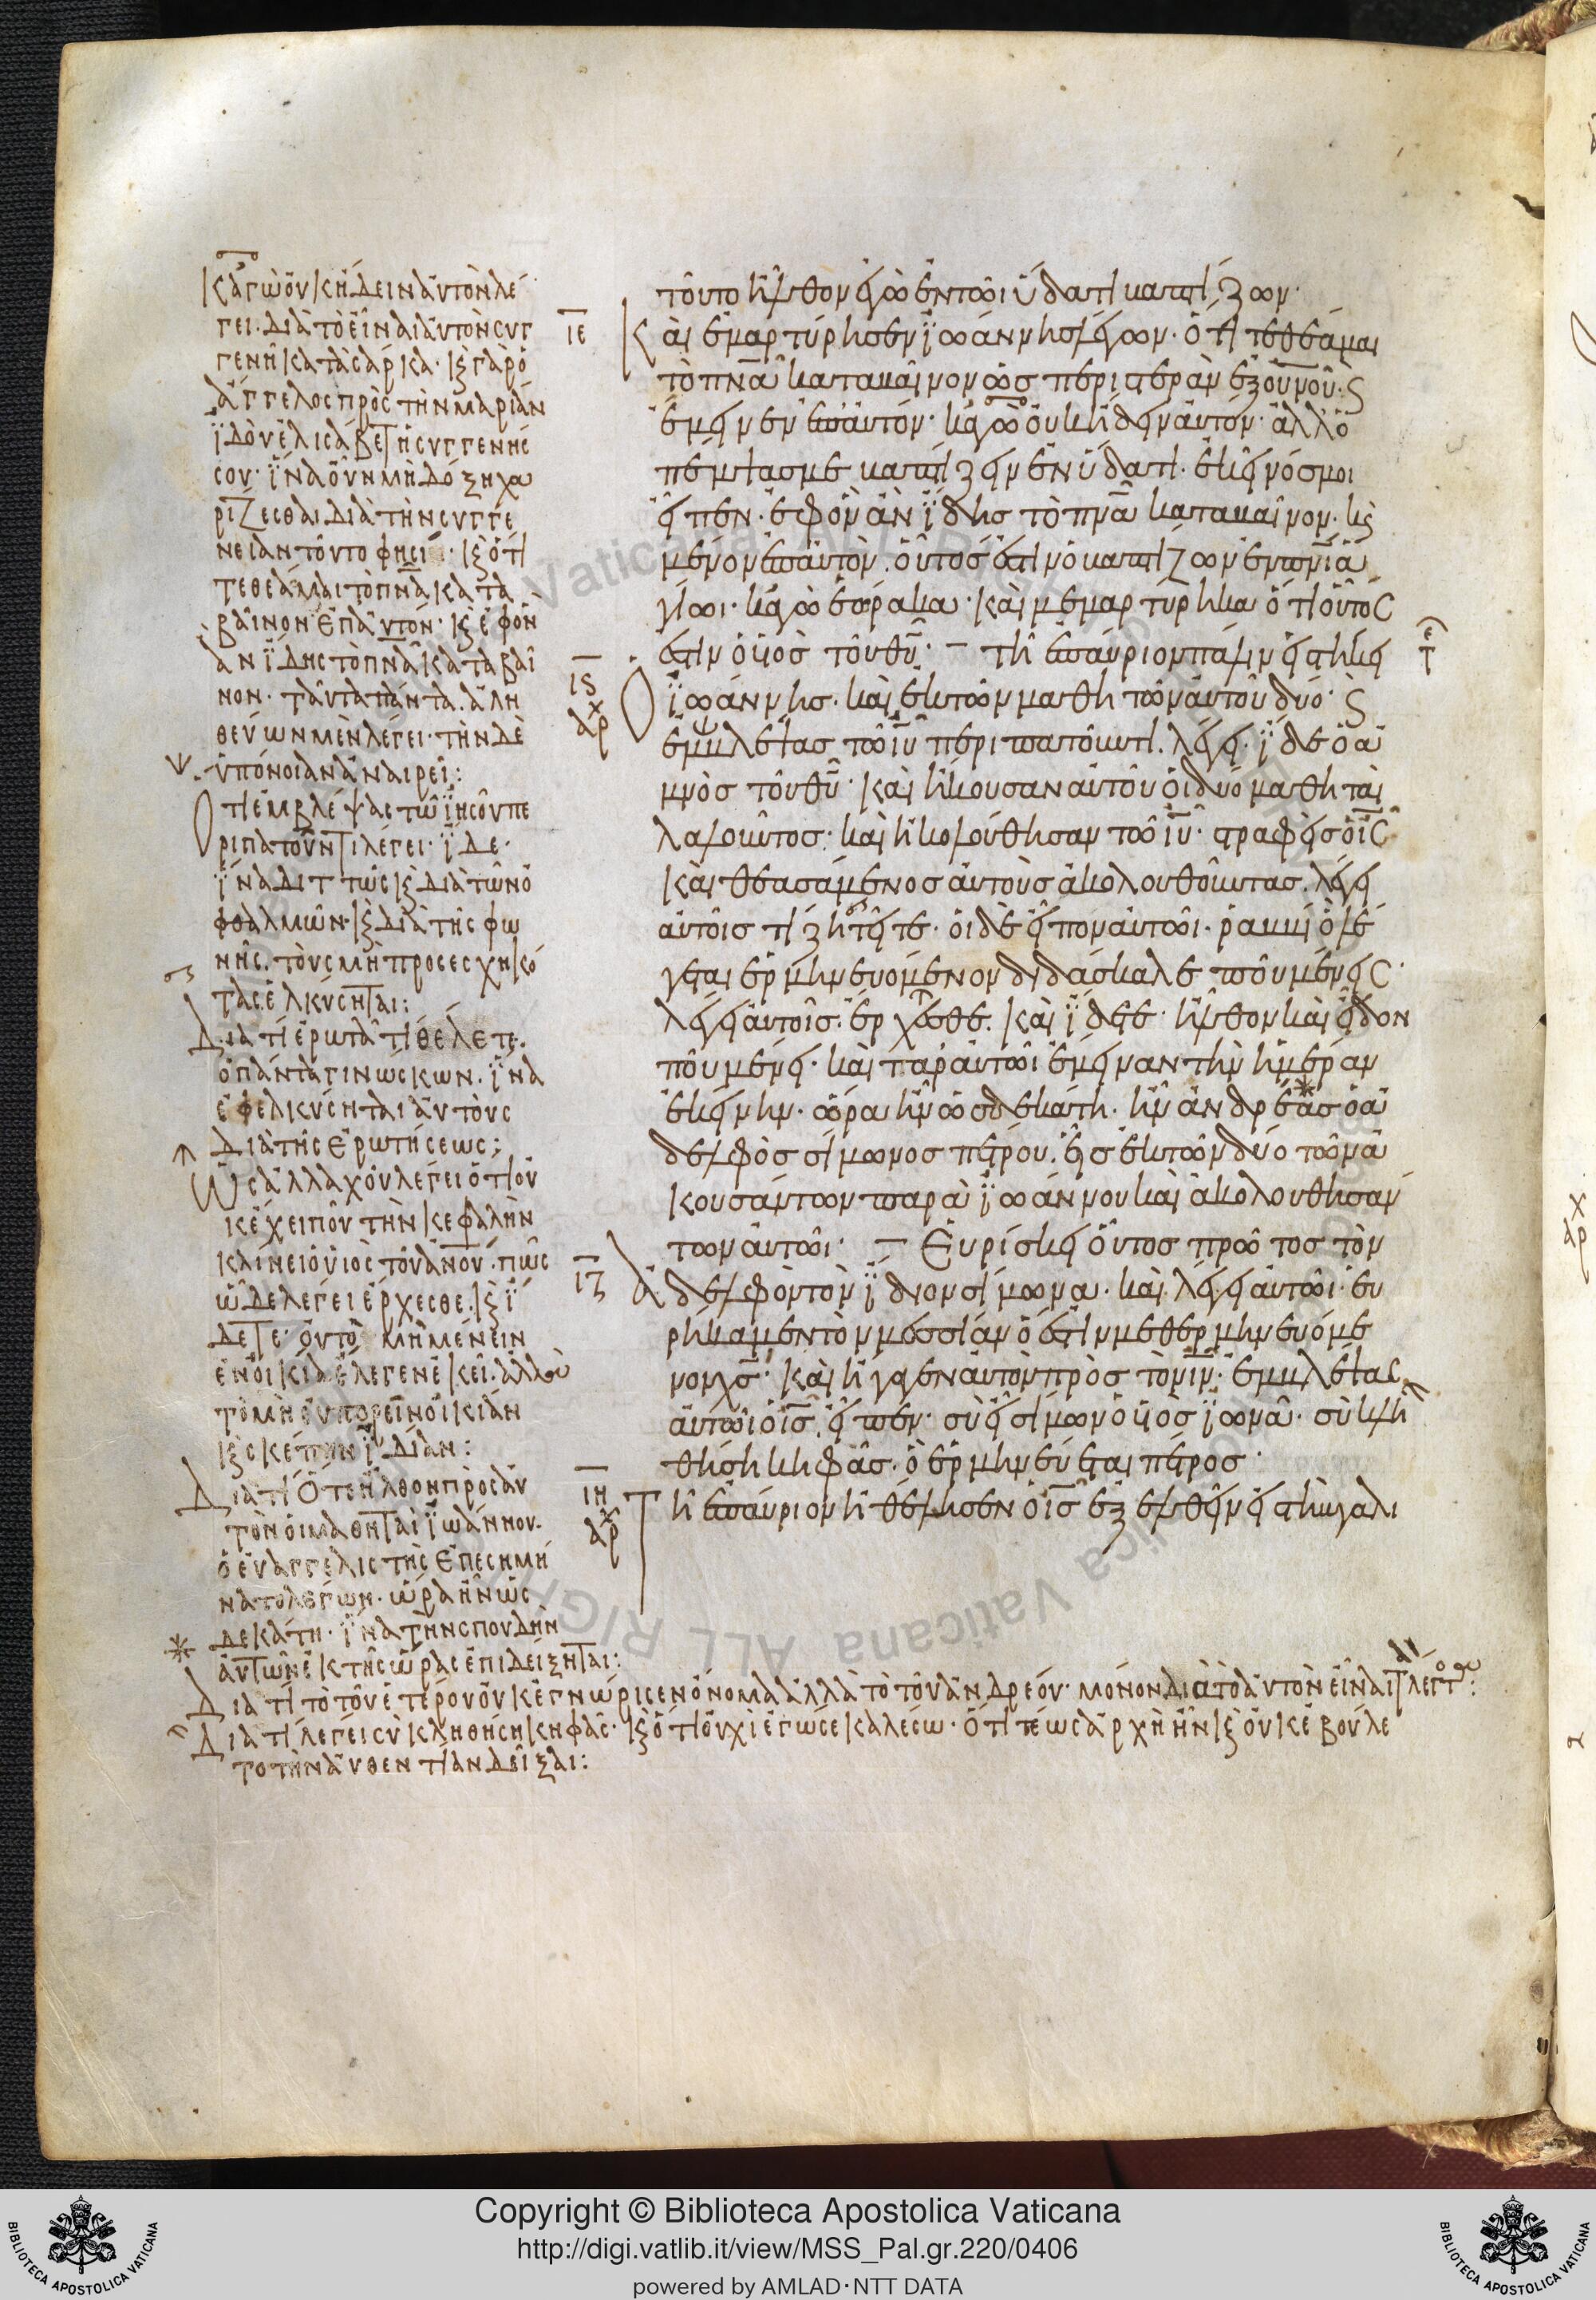 κἀγὼ οὐκ ἤδειν αὐτὸν λέ
γει. διὰ τὸ εἶναι αὐτὸν συγ
γενῆ κατὰ σάρκα. κ̀ γὰρ ὁ
ἄγγελος πρὸς τὴν μαριὰν
ἰ̈δοὺ ἐλισάβετ ἡ συγγενής
σου. ἵ̈να οὖν μὴ δόξῃ χα
ρίζεσθαι διὰ τὴν συγγέ
νειαν τοῦτο φησί. κ̀ ὅτι
τεθέαμαι τὸ πν̅α̅ κατα
βαῖνον ἐπ αὐτόν. κ̀ ἐφ ὃν
ἂν ἴ̈δῃς τὸ πν̅α̅ καταβαῖ
νον. ταῦτα πάντα ἀλη
θεύων μὲν λέγει. τὴν δὲ
ὑπόνοιαν ἀναιρεῖ:
Ὅτι ἐμβλέψας τῷ ἰ̈ησοῦ πε
ριπατοῦντι λέγει. ἴ̈δε.
ἵ̈να διττῶς κ̀ διὰ τῶν ὀ
φθαλμῶν. κ̀ διὰ τῆς φω
νῆς. τοὺς μὴ προσεσχηκό
τας ἑλκύσηται:
Διατί ἐρωτᾷ τί θέλετε.
ὁ πάντα γινώσκων. ἵ̈να
ἐφελκύσηται αὐτοὺς
διὰ τῆς ἐρωτήσεως:
Ὡς ἀλλαχοῦ λέγει ὅτι οὐ
κ ἔχει ποῦ τὴν κεφαλὴν
κλίνει ὁ υἱὸς τοῦ ἀν̅ο̅υ̅. πῶς
ὧδε λέγει ἔρχεσθε κ̀ ἴ̈
δετε. οὐ τὸ μὴ μένειν
ἐν οἰκίᾳ ἔλεγεν ἐκεῖ. ἀλλὰ
τὸ μὴ εὐπορεῖν οἰκίαν
κ̀ σκέπην ἰ̈δίαν:
Διατί ὅτε ἦλθον πρὸς αὐ
τὸν οἱ μαθηταὶ ἰ̈ωάννου.
ὁ εὐαγγελιστὴς ἐπεσημή
νατο λέγων. ὥρα ἦν ὡς
δεκάτη. ἵ̈να τὴν σπουδὴν
αὐτῶν ἐκ τῆς ὥρας ἐπιδείξηται:
Διατί τὸ τοῦ ἑτέρου οὐκ ἐγνώρισεν ὄνομα ἀλλὰ τὸ τοῦ ἀνδρέου. μόνον διὰ τὸ αὐτὸν εἶναι
Διατί λέγει σὺ κληθήσῃ κηφᾶς. κ̀ ὅτι οὐχὶ ἐγώ σε καλέσω. ὅτι τέως ἀρχὴ ἦν κ̀ οὐκ ἐβούλε
το τὴν αὐθεντίαν δεῖξαι:
τοῦτο ἦλθον ἐγὼ ἐν τῶι ὕδατι βαπτίζων.
ιε Καὶ ἐμαρτύρησεν ἰ̈ωάννης λέγων. ὅτι τεθέαμαι
τὸ πν̅α̅ καταβαῖνον ὡς περιστερὰν ἐξ ου̅ν̅ο̅υ̅. κ̀
ἔμεινεν ἐπ αὐτόν. κἀγὼ οὐκ ἤδειν αὐτόν. ἀλλ ὁ
πέμψας με βαπτίζειν ἐν ὕδατι. ἐκεῖνός μοι
εἶπεν. ἐφ ὃν ἂν ἴ̈δῃς τὸ πν̅α̅ καταβαῖνον. κ̀
μένον ἐπ αὐτὸν. οὗτός ἐστιν ὁ βαπτίζων ἐν πν̅ι̅ ἁ
γίωι. κἀγὼ ἑώρακα. καὶ μεμαρτύρηκα ὅτι οὗτός
ἐστιν ὁ υἱὸς τοῦ θ̅υ̅. τῆ ἐπαύριον πάλιν εἱστήκει
ις ὁ ἰ̈ωάννης. καὶ ἐκ τῶν μαθητῶν αὐτοῦ δύο. κ̀
ἐμβλέψας τῶ ι̅υ̅ περιπατοῦντι. λέγει. ἴ̈δε ὁ ἀ
μνὸς τοῦ θ̅υ̅. καὶ ἤκουσαν αὐτοῦ οἱ δύο μαθηταὶ
λαλοῦντος. καὶ ἠκολούθησαν τῶ ι̅υ̅. στραφεὶς ὁ ι̅ς̅
καὶ θεασάμενος αὐτοὺς ἀκολουθοῦντας. λέγει
αὐτοῖς τί ζητεῖτε. οἱ δὲ εἶπον αὐτῶι. ῥαββὶ ὃ λέ
γεται ἑρμηνευόμενον διδάσκαλε ποῦ μένεις.
λέγει αὐτοῖς. ἔρχεσθε. καὶ ἴ̈δετε. ἦλθον καὶ εἶδον
ποῦ μένει. καὶ παρ αὐτῶι ἔμειναν τὴν ἡμέραν
ἐκείνην. ὥρα ἦν ὡς δεκάτη. ἦν ἀνδρέας ὁ ἀ
δελφὸς σίμωνος πέτρου. εἷς ἐκ τῶν δύο τῶν ἀ
κουσάντων παρὰ ἰ̈ωάννου καὶ ἀκολουθησάν
των αὐτῶι. Εὑρίσκει οὗτος πρῶτος τὸν
ιζ ἀδελφὸν τὸν ἴ̈διον σίμωνα. καὶ λέγει αὐτῶι. εὑ
ρήκαμεν τὸν μεσσίαν ὅ ἐστιν μεθερμηνευόμε
νον χ̅ς̅. καὶ ἤγαγεν αὐτὸν πρὸς τὸν ι̅ν̅. ἐμβλέψας
αὐτῶι ὁ ι̅ς̅. εἶπεν. σὺ εἶ σίμων ὁ υἱὸς ἰ̈ωνᾶ. σὺ κλη
θήσῃ κηφᾶς. ὃ ἑρμηνεύεται πέτρος.
ιη Τῆ ἐπαύριον ἠθέλησεν ὁ ι̅ς̅ ἐξελθεῖν εἰς τὴν γαλι
Copyright © Biblioteca Apostolica Vaticana
http://digi.vatlib.it/view/MSS_Pal.gr.220/0406
powered by AMLAD·NTT DATA
BIBLIOTECA APOSTOLICA VATICANA
BIBLIOTECA APOSTOLICA VATICANA